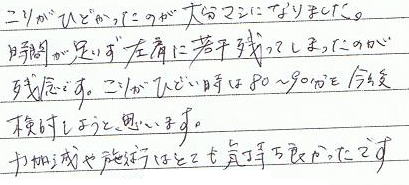 こりがひどかったのが大分マシになりました。
時間が足りず左肩に若干残ってしまったのが
残念です。こりがひどい時は80〜90分を今後
検討しようと思います。
力加減や施術はとても気持ち良かったです